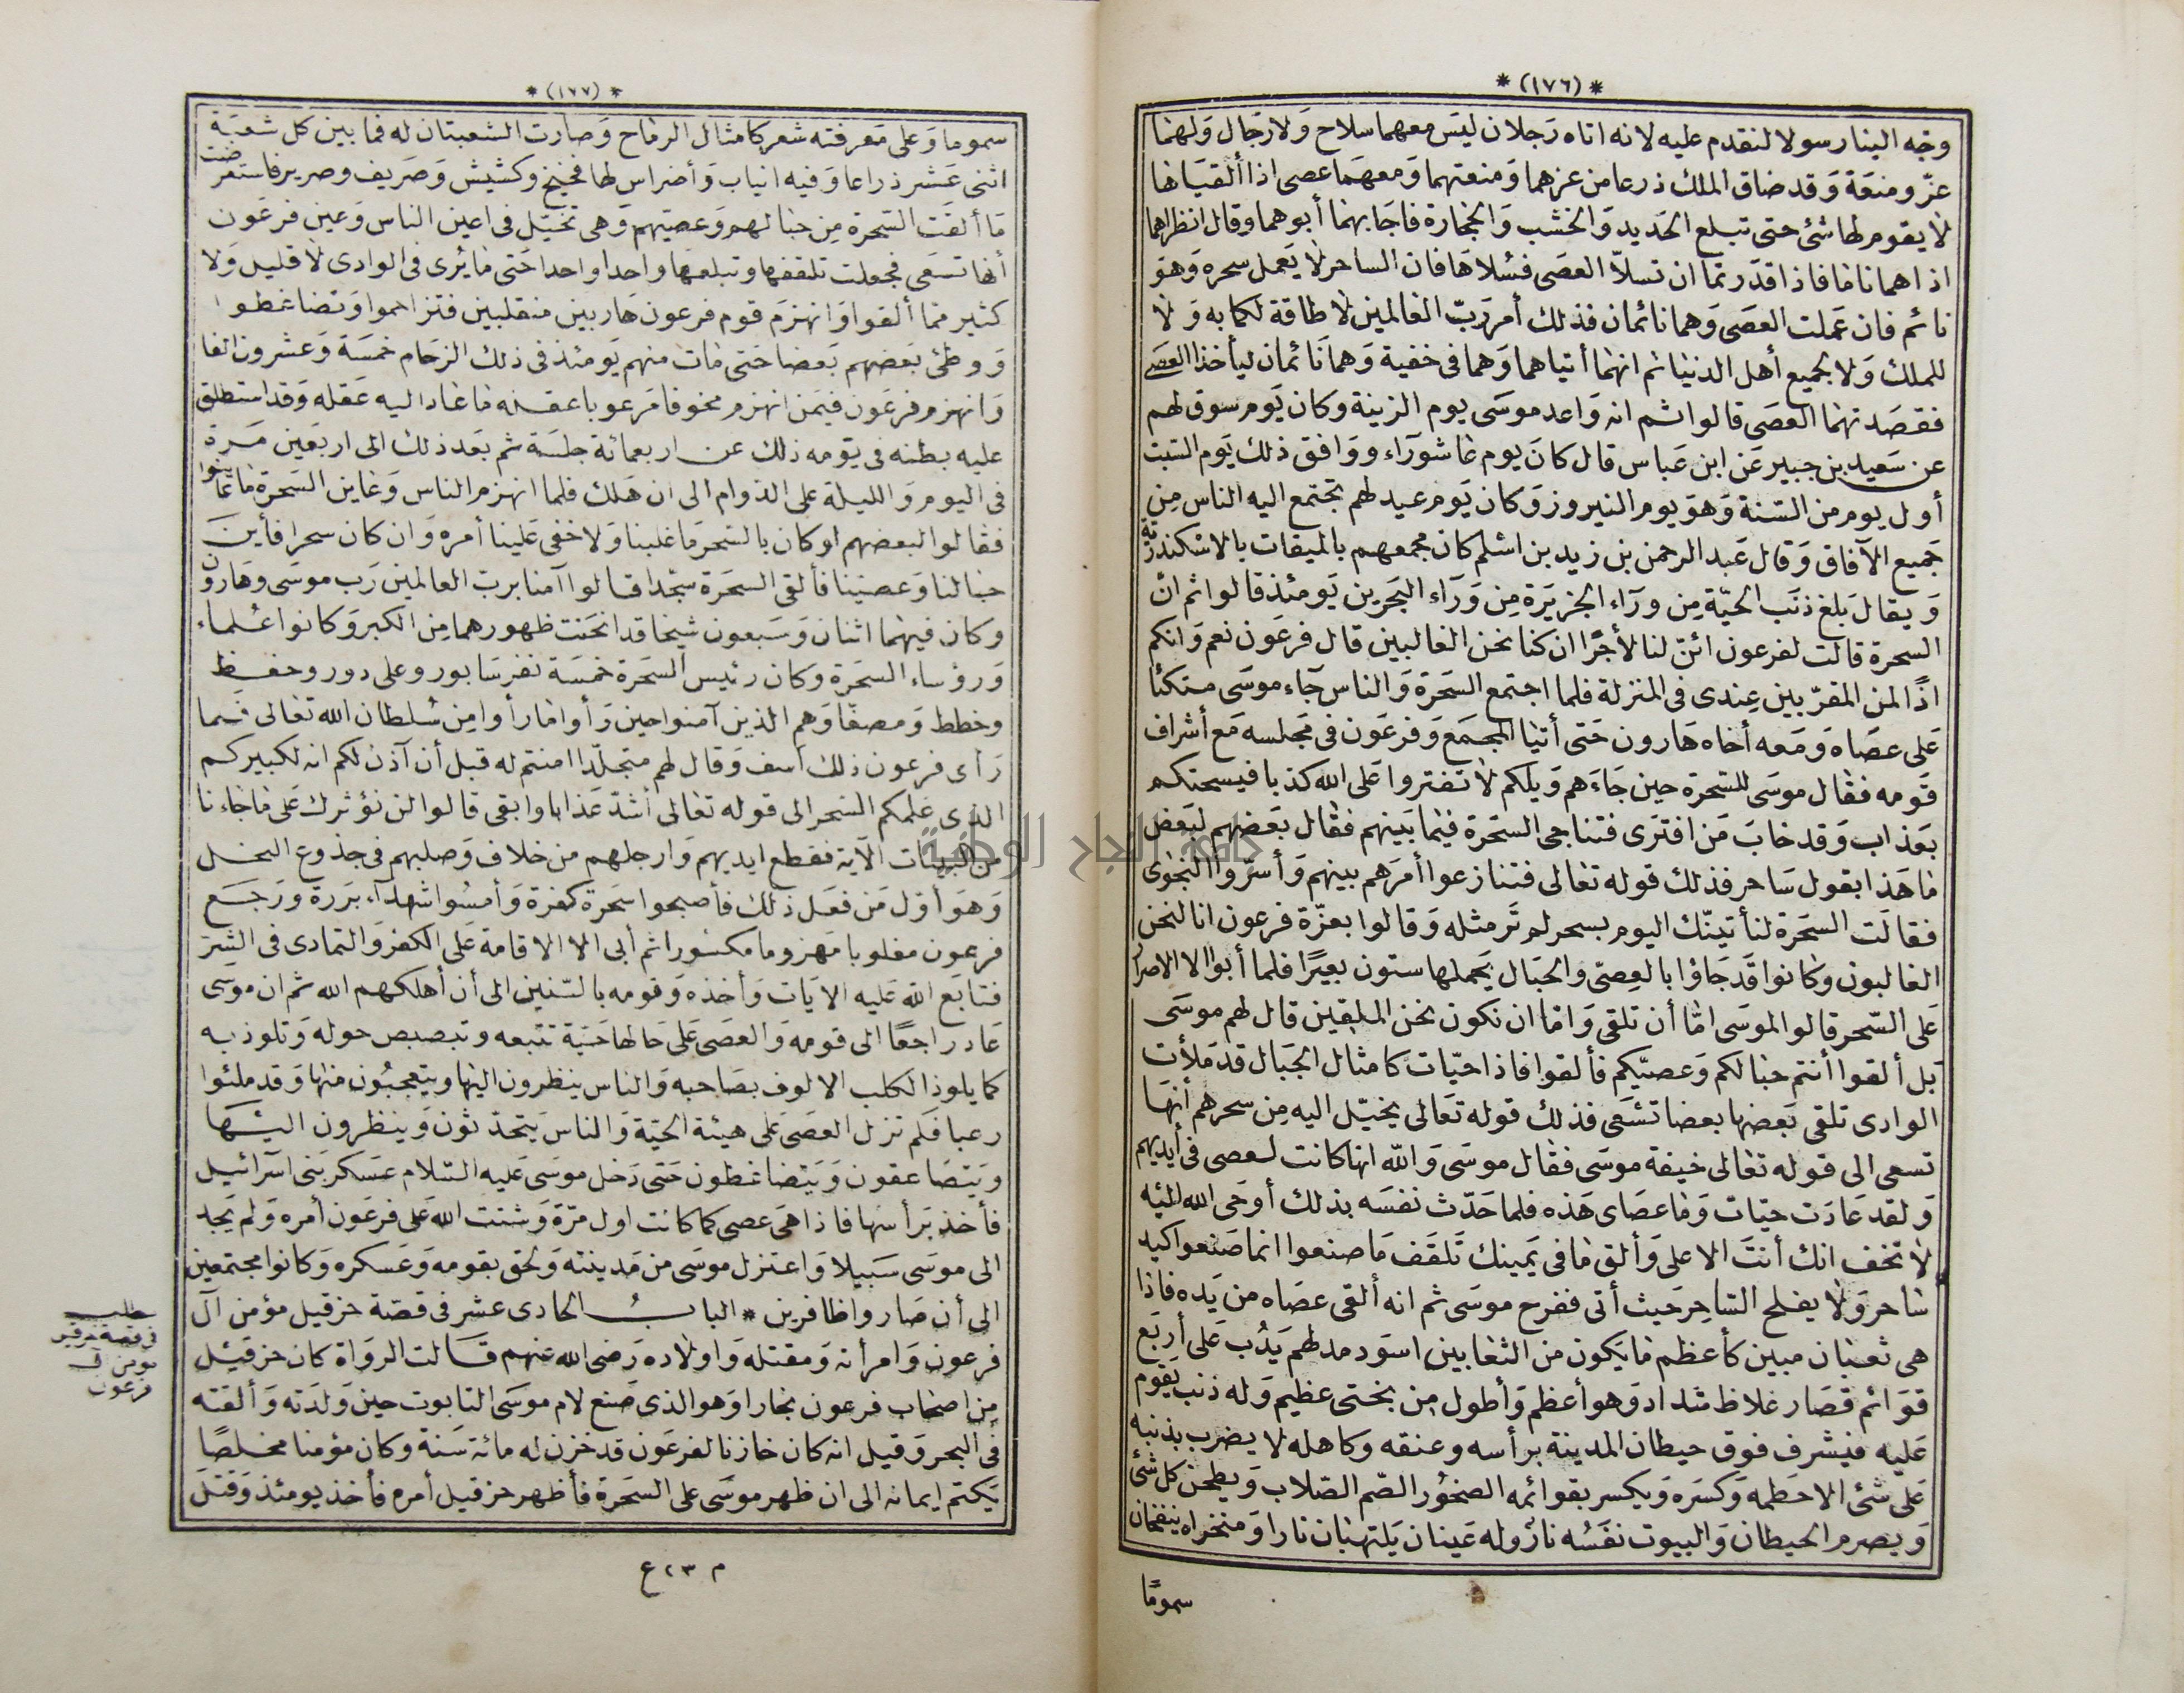 * (١٧٦) *
وجه الينا رسولا لنقدم عليه لانه اتاه رجلان ليس معهما سلاح ولا رجال ولهما
عز ومنعة وقد ضاق الملك ذرعا من عزهما ومنعتهما ومعهما عصى اذا ألقياها
لا يقوم لها شئ حتى تبلع الحديد والخشب والحجارة فاجابهما أبوهما وقال انظراهما
اذا هما ناما فاذا قدرتما ان تسلا العصى فسلاها فان الساحر لا يعمل سحره وهو
نائم فان عملت العصى وهما نائمان فذلك أمر رب العالمين لا طاقة لكما به ولا
للملك ولا لجميع أهل الدنيا ثم انهما أتياهما وهما فى خفية وهما نائمان ليأخذا العصى
فقصدتهما العصى قالوا ثم انه واعد موسى يوم الزينة وكان يوم سوق لهم
عن سعيد بن جبير عن ابن عباس قال كان يوم عاشوراء ووافق ذلك يوم السبت
أول يوم من السنة وهو يوم النيروز وكان يوم عيد لهم تجتمع اليه الناس من
جميع الآفاق وقال عبد الرحمن بن زيد بن اسلم كان مجمعهم بالميقات بالاسكندرية
ويقال بلغ ذنب الحية من ورآء الجزيرة من ورآء البحرين يومئذ قالوا ثم ان
السحرة قالت لفرعون ائن لنا لأجرًا ان كنا نحن الغالبين قال فرعون نعم وانكم
اذًا لمن المقربين عندى فى المنزلة فلما اجتمع السحرة والناس جآء موسى متكئا
على عصاه ومعه أخاه هارون حتى أتيا المجمع وفرعون فى مجلسه مع أشراف
قومه فقال موسى للسحرة حين جاءهم ويلكم لا تفتروا على الله كذبا فيسحتكم
بعذاب وقد خاب من افترى فتناجى السحرة فيما بينهم فقال بعضهم لبعض
ما هذا بقول ساحر فذلك قوله تعالى فتنازعوا أمرهم بينهم وأسروا النجوى
فقالت السحرة لنأتينك اليوم بسحر لم تر مثله وقالوا بعزة فرعون انا لنحن
الغالبون وكانوا قد جاؤا بالعصى والحبال يحملها ستون بعيرًا فلما أبوا الا الاصرار
على السحر قالوا لموسى اما أن تلقى واما ان نكون نحن الملقين قال لهم موسى
بل ألقوا أنتم حبالكم وعصيكم فألقوا فاذا حيات كامثال الجبال قد ملأت
الوادى تلقى بعضها بعضا تسعى فذلك قوله تعالى يخيل اليه من سحرهم أنها
تسعى الى قوله تعالى خيفة موسى فقال موسى والله انها كانت لعصى فى أيديهم
ولقد عادت حيات وما عصاى هذه فلما حدث نفسه بذلك أوحى الله اليه
لا تخف انك أنت الاعلى وألق ما فى يمينك تلقف ما صنعوا انما صنعوا كيد
ساحر ولا يفلح الساحر حيث أتى ففرح موسى ثم انه ألقى عصاه من يده فاذا
هى ثعبان مبين كأعظم ما يكون من الثعابين اسود مدلهم يدب على أربع
قوائم قصار غلاظ شداد وهو أعظم وأطول من بختى عظيم وله ذنب يقوم
عليه فيشرف فوق حيطان المدينة برأسه وعنقه وكاهله لا يضرب بذنبه
على شئ الا حطمه وكسره ويكسر بقوائمه الصخور الصم الصلاب ويطحن كل شئ
ويصرم الحيطان والبيوت نفسه نار وله عينان يلتهبان نارا ومنخراه ينفخان
سمومًا
* (١٧٧) *
سموما وعلى معرفته شعر كامثال الرماح وصارت الشعبتان له فما بين كل شعبة
اثنى عشر ذراعا وفيه انياب وأضراس لها فحيح وكشيش وصريف وصرير فاستعرضت
ما ألقت السحرة من حبالهم وعصيهم وهى تخيل فى اعين الناس وعين فرعون
أنها تسعى فجعلت تلقفها وتبلعها واحدا واحدا حتى ما يرى فى الوادى لا قليل ولا
كثير مما ألقوا وانهزم قوم فرعون هاربين منقلبين فتزاحموا وتضاغطوا
ووطئ بعضهم بعضا حتى مات منهم يومئذ فى ذلك الزحام خمسة وعشرون الفا
وانهزم فرعون فيمن انهزم مخوفا مرعوبا عقله ما عاد اليه عقله وقد استطلق
عليه بطنه فى يومه ذلك عن اربعمائة جلسة ثم بعد ذلك الى اربعين مرة
فى اليوم والليلة على الدوام الى ان هلك فلما انهزم الناس وعاين السحرة ما عاينوا
فقالوا لبعضهم لو كان بالسحر ما غلبنا ولا خفى علينا أمره وان كان سحرا فأين
حبالنا وعصينا فألقى السحرة سجدا قالوا آمنا برب العالمين رب موسى وهارون
وكان فيهما اثنان وسبعون شيخا قد انحنت ظهورهما من الكبر وكانوا علماء
ورؤساء السحرة وكان رئيس السحرة خمسة نفر سابور وعلى دور وحفظ
وخطط ومصفا وهم الذين آمنوا حين رأوا ما رأوا من سلطان الله تعالى فلما
رأى فرعون ذلك أسف وقال لهم متجلدا امنتم له قبل أن آذن لكم انه لكبيركم
الذى علمكم السحر الى قوله تعالى أشد عذابا وابقى قالوا لن نؤثرك على ما جاءنا
من البينات الآية فقطع ايديهم وارجلهم من خلاف وصلبهم فى جذوع النخل
وهو أول من فعل ذلك فأصبحوا سحرة كفرة وأمسوا شهدآء بررة ورجع
فرعون مغلوبا مهزوما مكسورا ثم أبى الا الاقامة على الكفر والتمادى فى الشر
فتابع الله عليه الايات وأخذه وقومه بالسنين الى أن أهلكهم الله ثم ان موسى
عاد راجعًا الى قومه والعصى على حالها حية تتبعه وتبصبص حوله وتلوذ به
كما يلوذ الكلب الالوف بصاحبه والناس ينظرون اليها ويتعجبون منها وقد ملئوا
رعبا فلم تزل العصى على هيئة الحية والناس يتحدثون وينظرون اليها
ويتصاعقون ويتضاغطون حتى دخل موسى عليه السلام عسكر بنى اسرآئيل
فأخذ برأسها فاذا هى عصى كما كانت اول مرة وشتت الله على فرعون أمره ولم يجد
الى موسى سبيلا واعتزل موسى من مدينته ولحق بقومه وعسكره وكانوا مجتمعين
الى أن صاروا ظافرين * الباب الحادى عشر فى قصة حزقيل مؤمن آل
فرعون وامرأته ومقتله واولاده رضى الله عنهم قالت الرواة كان حزقيل
من اصحاب فرعون نجارا وهو الذى صنع لام موسى التابوت حين ولدته وألقته
فى البحر وقيل انه كان خازنا لفرعون قد خزن له مائة سنة وكان مؤمنا مخلصًا
يكتم إيمانه الى ان ظهر موسى على السحرة فأظهر حزقيل أمره فأخذ يومئذ وقتل
مطلب
فى قصة حزقيل
مؤمن آل
فرعون
م ٢٣ ع
جامعة النجاح الوطنية